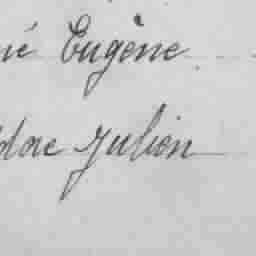 né Eugène
dore Julien